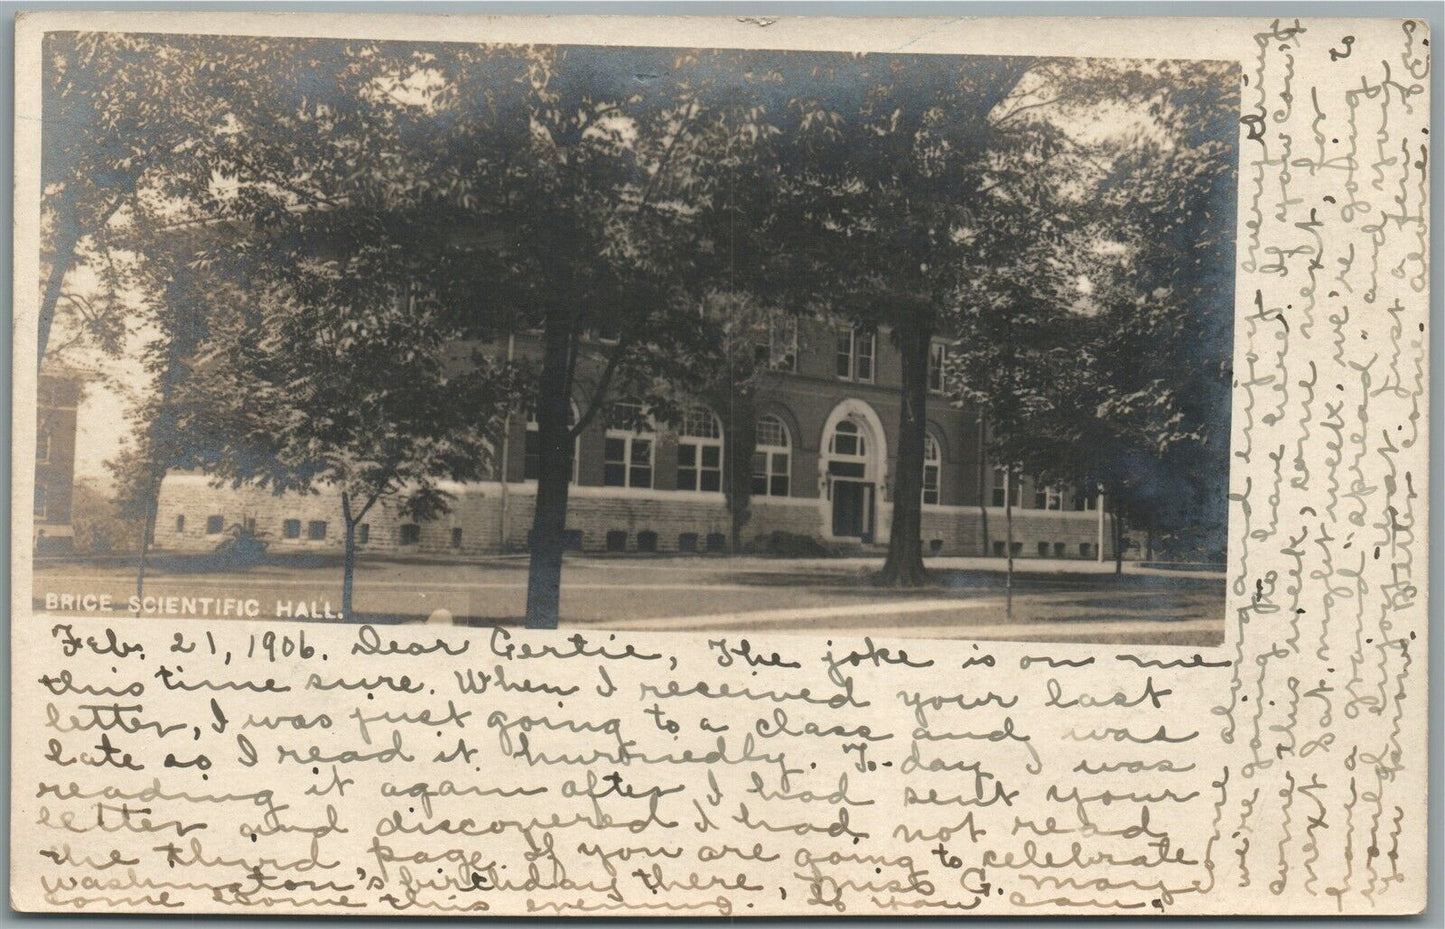 BRICE SCIENTIFIC HALL.
Feb. 21, 1906. Dear Gertie, The joke is on me
this time sure. When I received your last
letter, I was just going to a class and was
late so I read it hurriedly. To-day I was
reading it again after I had sent your
letter and discovered I had not read
the third page. If you are going to celebrate
Washington's birthday there, Miss G. Mary
come home this evening. If you can.
along and enjoy everything
we're going to have here. If you can't
come this week, come next, for
next Sat. night week, we're going to
have a Grand "spread" and you
would enjoy that. Just a few of us
you know. Better come.